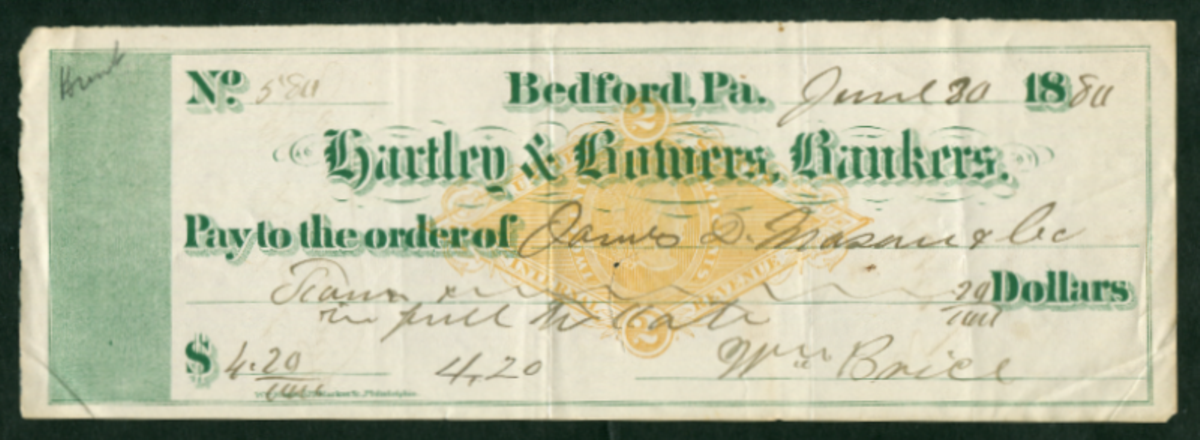 No. 580 Bedford, Pa. June 30 1880
Hartley & Bowers, Bankers.
Pay to the order of James D. Mason & Co
Four & 20/100 Dollars
in full to date
$ 4.20/100 4,20 Wm Brice
2
INTERNAL REVENUE
2